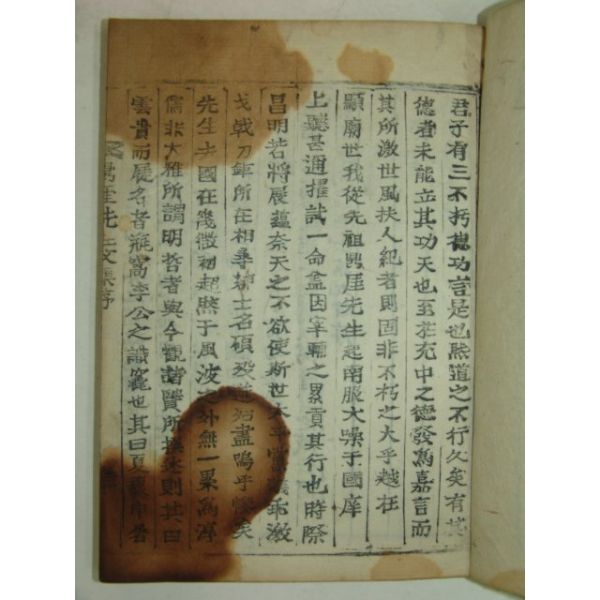 君子有三不朽德功言是也然道之不行久矣有其
德者未能立其功天也至於充中之德發爲嘉言而
其所激世風扶人紀者則固非不朽之大乎越在
顯廟世我從先祖厓先生起南服大噪于國庠
上聽甚適擢試一命盖因宰輔之累貢其行也時際
昌明若將展蘊奈天之不欲使斯世太平黨議乖激
戈戟刀鉅所在相尋士名碩盡嗚乎矣
先生去國在幾微初超然于風波之外無一累爲淳
儒非大雅所謂明哲者與今觀諸賢所撰述則其曰
雲貴而展名者甁窩李公之識也其曰夏
厓先生文集序